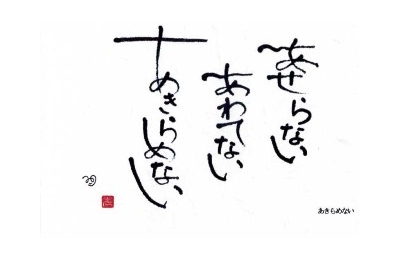 あせらない
あわてない
あきらめない
あきらめない